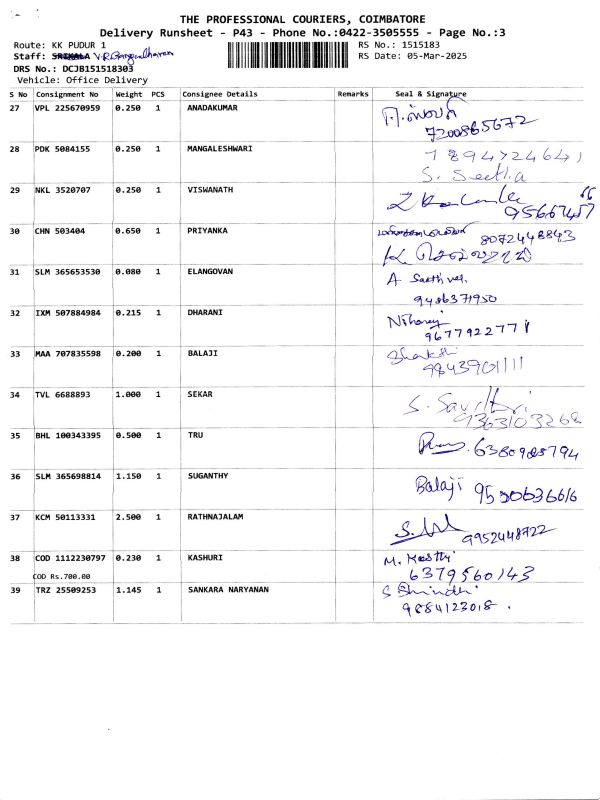 THE PROFESSIONAL COURIERS, COIMBATORE
Delivery Runsheet - P43 - Phone No.:0422-3505555 - Page No.:3
Route: KK PUDUR 1
RS No.: 1515183
Staff: SRIKALA
RS Date: 05-Mar-2025
DRS No.: DCJB151518303
Vehicle: Office Delivery
S No Consignment No Weight PCS Consignee Details Remarks Seal & Signature
27 VPL 225670959 0.250 1 ANADAKUMAR
7200865672
28 PDK 5084155 0.250 1 MANGALESHWARI 7894724641
S. Seetha
29 NKL 3520707 0.250 1 VISWANATH
30 CHN 503404 0.650 1 PRIYANKA 8072448843
31 SLM 365653530 0.080 1 ELANGOVAN A Sakthivel
9486371950
32 IXM 507884984 0.215 1 DHARANI
9677922771
33 MAA 707835598 0.200 1 BALAJI
9843901111
34 TVL 6688893 1.000 1 SEKAR S. Savithri
9363103268
35 BHL 100343395 0.500 1 TRU 6380985794
36 SLM 365698814 1.150 1 SUGANTHY Balaji 9530636616
37 KCM 50113331 2.500 1 RATHNAJALAM 9952448722
38 COD 1112230797 0.230 1 KASHURI M.
COD Rs.700.00 6379560143
39 TRZ 25509253 1.145 1 SANKARA NARYANAN
9884123018.